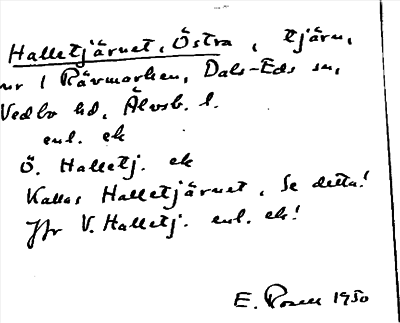 Halletjärnet, Östra, tjärn,
nr 1 Rävmarken, Dals-Eds sn,
Vedbo hd, Älvsb. l.
enl. ek
Ö. Halletj. ek
Kallas Halletjärnet, Se detta!
Jfr V. Halletj. enl. ek!
E. Rosell 1950